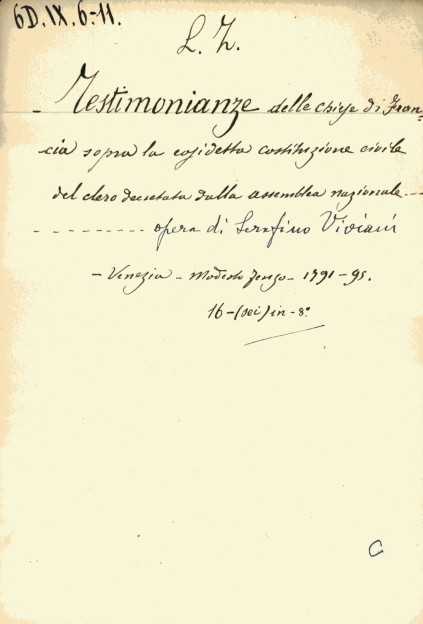 6D.IX.6-11.
L. Z.
- Testimonianze delle chiese di Fran-
cia sopra la cosidetta costituzione civile
del clero decretata dalla assemblea nazionale ---
--------- opera di Serafino Viviani
- Venezia - Modesto Fenzo - 1791-95.
16 - (sei) in - 8.°
C